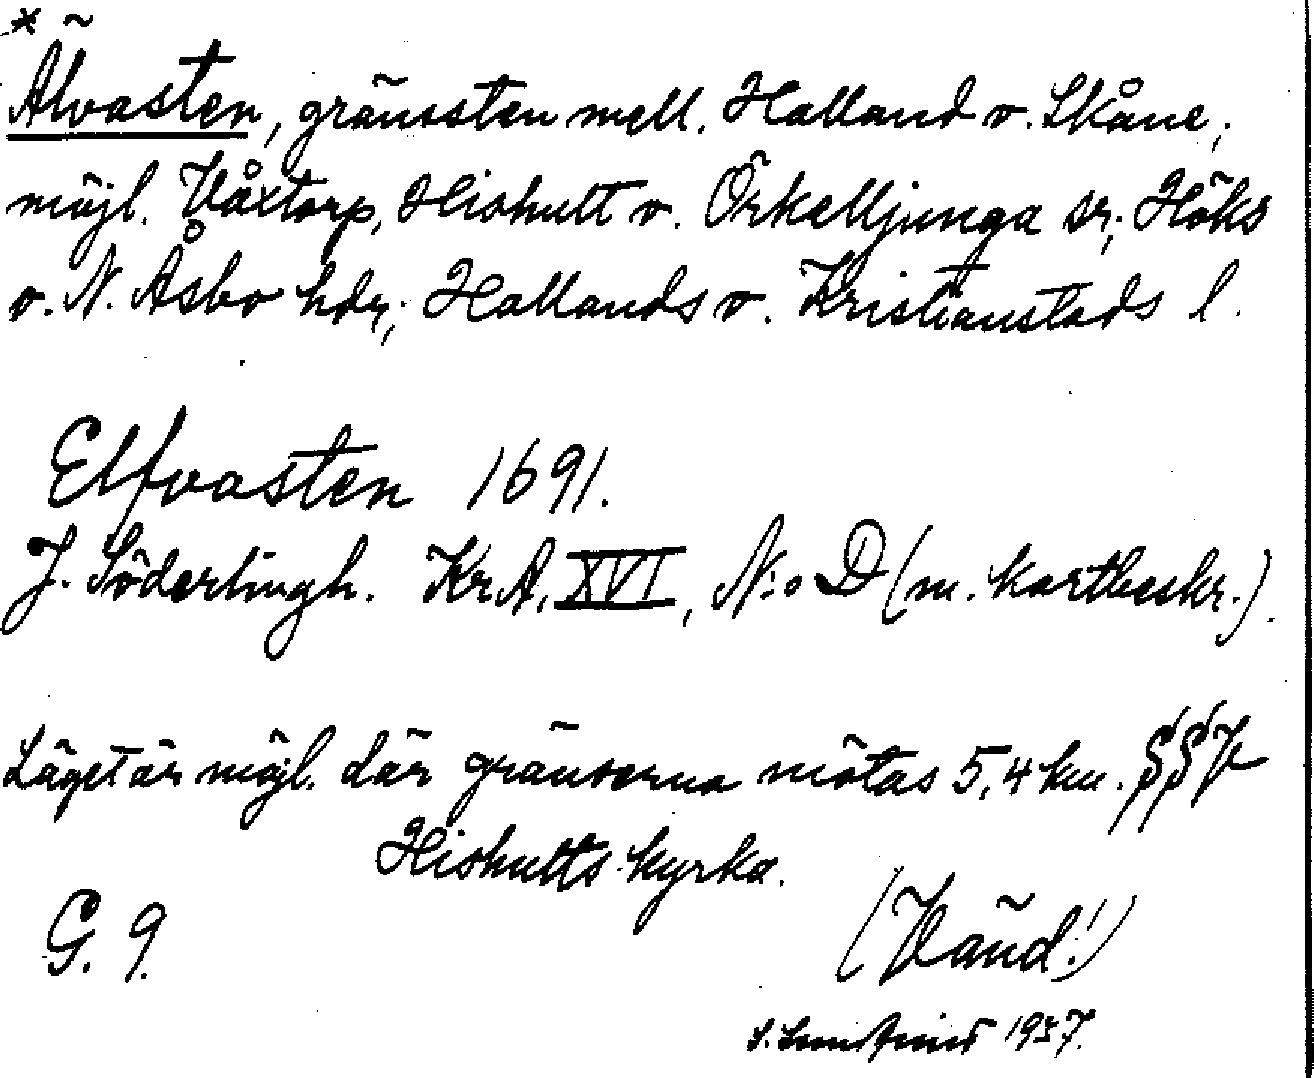 *
Älvasten, gränssten mell. Halland o. Skåne,
möjl. Våxtorp, Hishult o. Örkelljunga sr; Höks
o. N. Åsbo hdr; Hallands o. Kristianstads l.
Elfvasten 1691.
J. Söderlingh. Kr.A. XVI, N:o D (m. kartbeskr.).
Läget är möjl. där gränserna mötas 5,4 km. SSV
Hishults kyrka.
G. 9.
(Vänd!)
S. 1937.